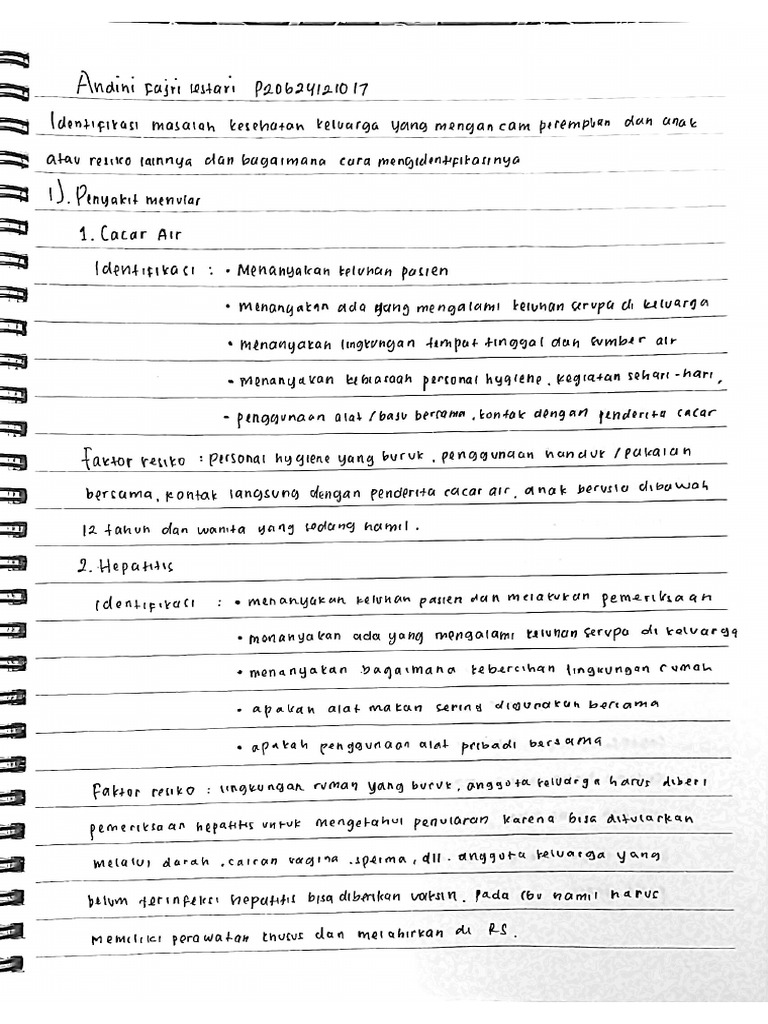 Andini Fajri Lestari P20624121017
Identifikasi masalah kesehatan keluarga yang mengancam perempuan dan anak
atau resiko lainnya dan bagaimana cara mengidentifikasinya
1). Penyakit menular
1. Cacar Air
Identifikasi : • Menanyakan keluhan pasien
• menanyakan ada yang mengalami keluhan serupa di keluarga
• menanyakan lingkungan tempat tinggal dan sumber air
• menanyakan kebiasaan personal hygiene, kegiatan sehari-hari,
- penggunaan alat /baju bersama, kontak dengan penderita cacar
Faktor resiko : personal hygiene yang buruk, penggunaan handuk /pakaian
bersama, kontak langsung dengan penderita cacar air, anak berusia dibawah
12 tahun dan wanita yang sedang hamil.
2. Hepatitis
Identifikasi : • menanyakan keluhan pasien dan melakukan pemeriksaan
• menanyakan ada yang mengalami keluhan serupa di keluarga
• menanyakan bagaimana kebersihan lingkungan rumah
• apakah alat makan sering digunakan bersama
• apakah penggunaan alat pribadi bersama
Faktor resiko : lingkungan rumah yang buruk, anggota keluarga harus diberi
pemeriksaan hepatitis untuk mengetahui penularan karena bisa ditularkan
melalui darah, cairan vagina, sperma, dll. anggota keluarga yang
belum terinfeksi hepatitis bisa diberikan vaksin. Pada ibu hamil harus
memiliki perawatan khusus dan melahirkan di RS.